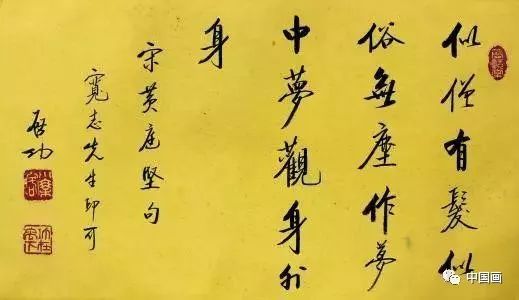 似僧有髮似
俗無塵作夢
中夢觀身外
身
宋黄庭堅句
寬志先生印可
啓功
中国画